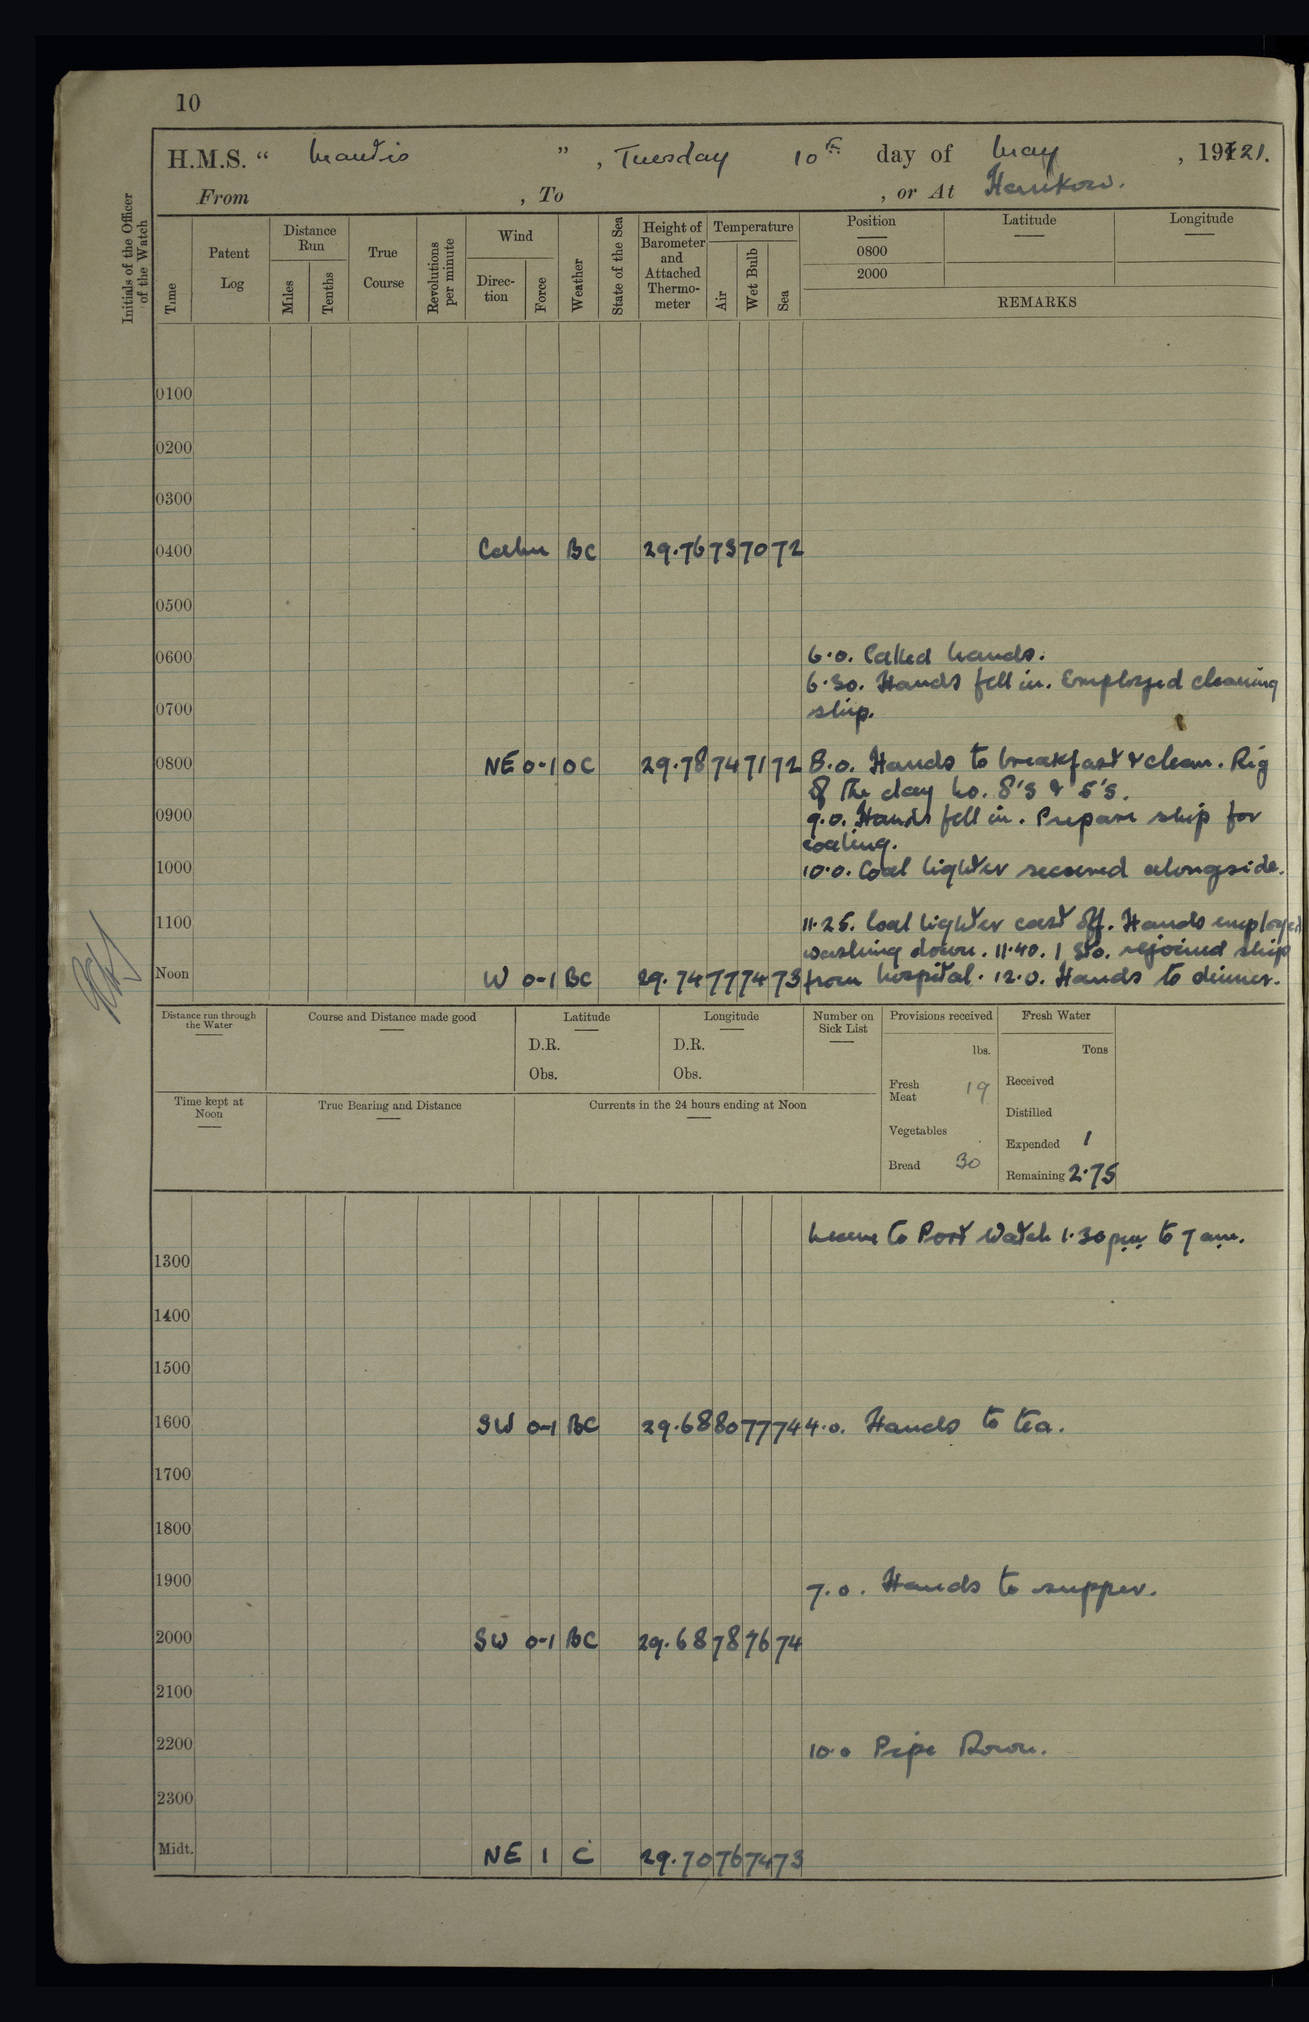 10
H.M.S. “ Mantis ” , Tuesday 10th day of May , 1921.
From , To , or At Hankow.
Initials of the Officer of the Watch
Time
Patent Log
Distance Run
Miles
Tenths
True Course
Revolutions per minute
Wind
Direction
Force
Weather
State of the Sea
Height of Barometer and Attached Thermometer
Temperature
Air
Wet Bulb
Sea
Position
0800
2000
Latitude
Longitude
REMARKS
0100
0200
0300
0400 Calm BC 29.76 73 70 72
0500
0600 6.0. Called hands.
6.30. Hands fell in. Employed cleaning
0700 ship.
0800 NE 0-1 OC 29.78 74 71 72 8.0. Hands to breakfast & clean. Rig
of the day No. 8's & 5's.
0900 9.0. Hands fell in. Prepare ship for
coaling.
1000 10.0. Coal lighter secured alongside.
1100 11.25. Coal lighter cast off. Hands employed
washing down. 11.40. 1 Sto. rejoined ship
Noon W 0-1 BC 29.74 77 74 73 from hospital. 12.0. Hands to dinner.
Distance run through the Water
Course and Distance made good
Latitude
D.R.
Obs.
Longitude
D.R.
Obs.
Number on Sick List
Provisions received
lbs.
Fresh Meat 19
Vegetables
Bread 30
Fresh Water
Tons
Received
Distilled
Expended 1
Remaining 2.75
Time kept at Noon
True Bearing and Distance
Currents in the 24 hours ending at Noon
Leave to Port Watch 1.30 pm to 7 am.
1300
1400
1500
1600 SW 0-1 BC 29.68 80 77 74 4.0. Hands to tea.
1700
1800
1900 7.0. Hands to supper.
2000 SW 0-1 BC 29.68 78 76 74
2100
2200 10.0 Pipe Down.
2300
Midt. NE 1 C 29.70 76 74 73